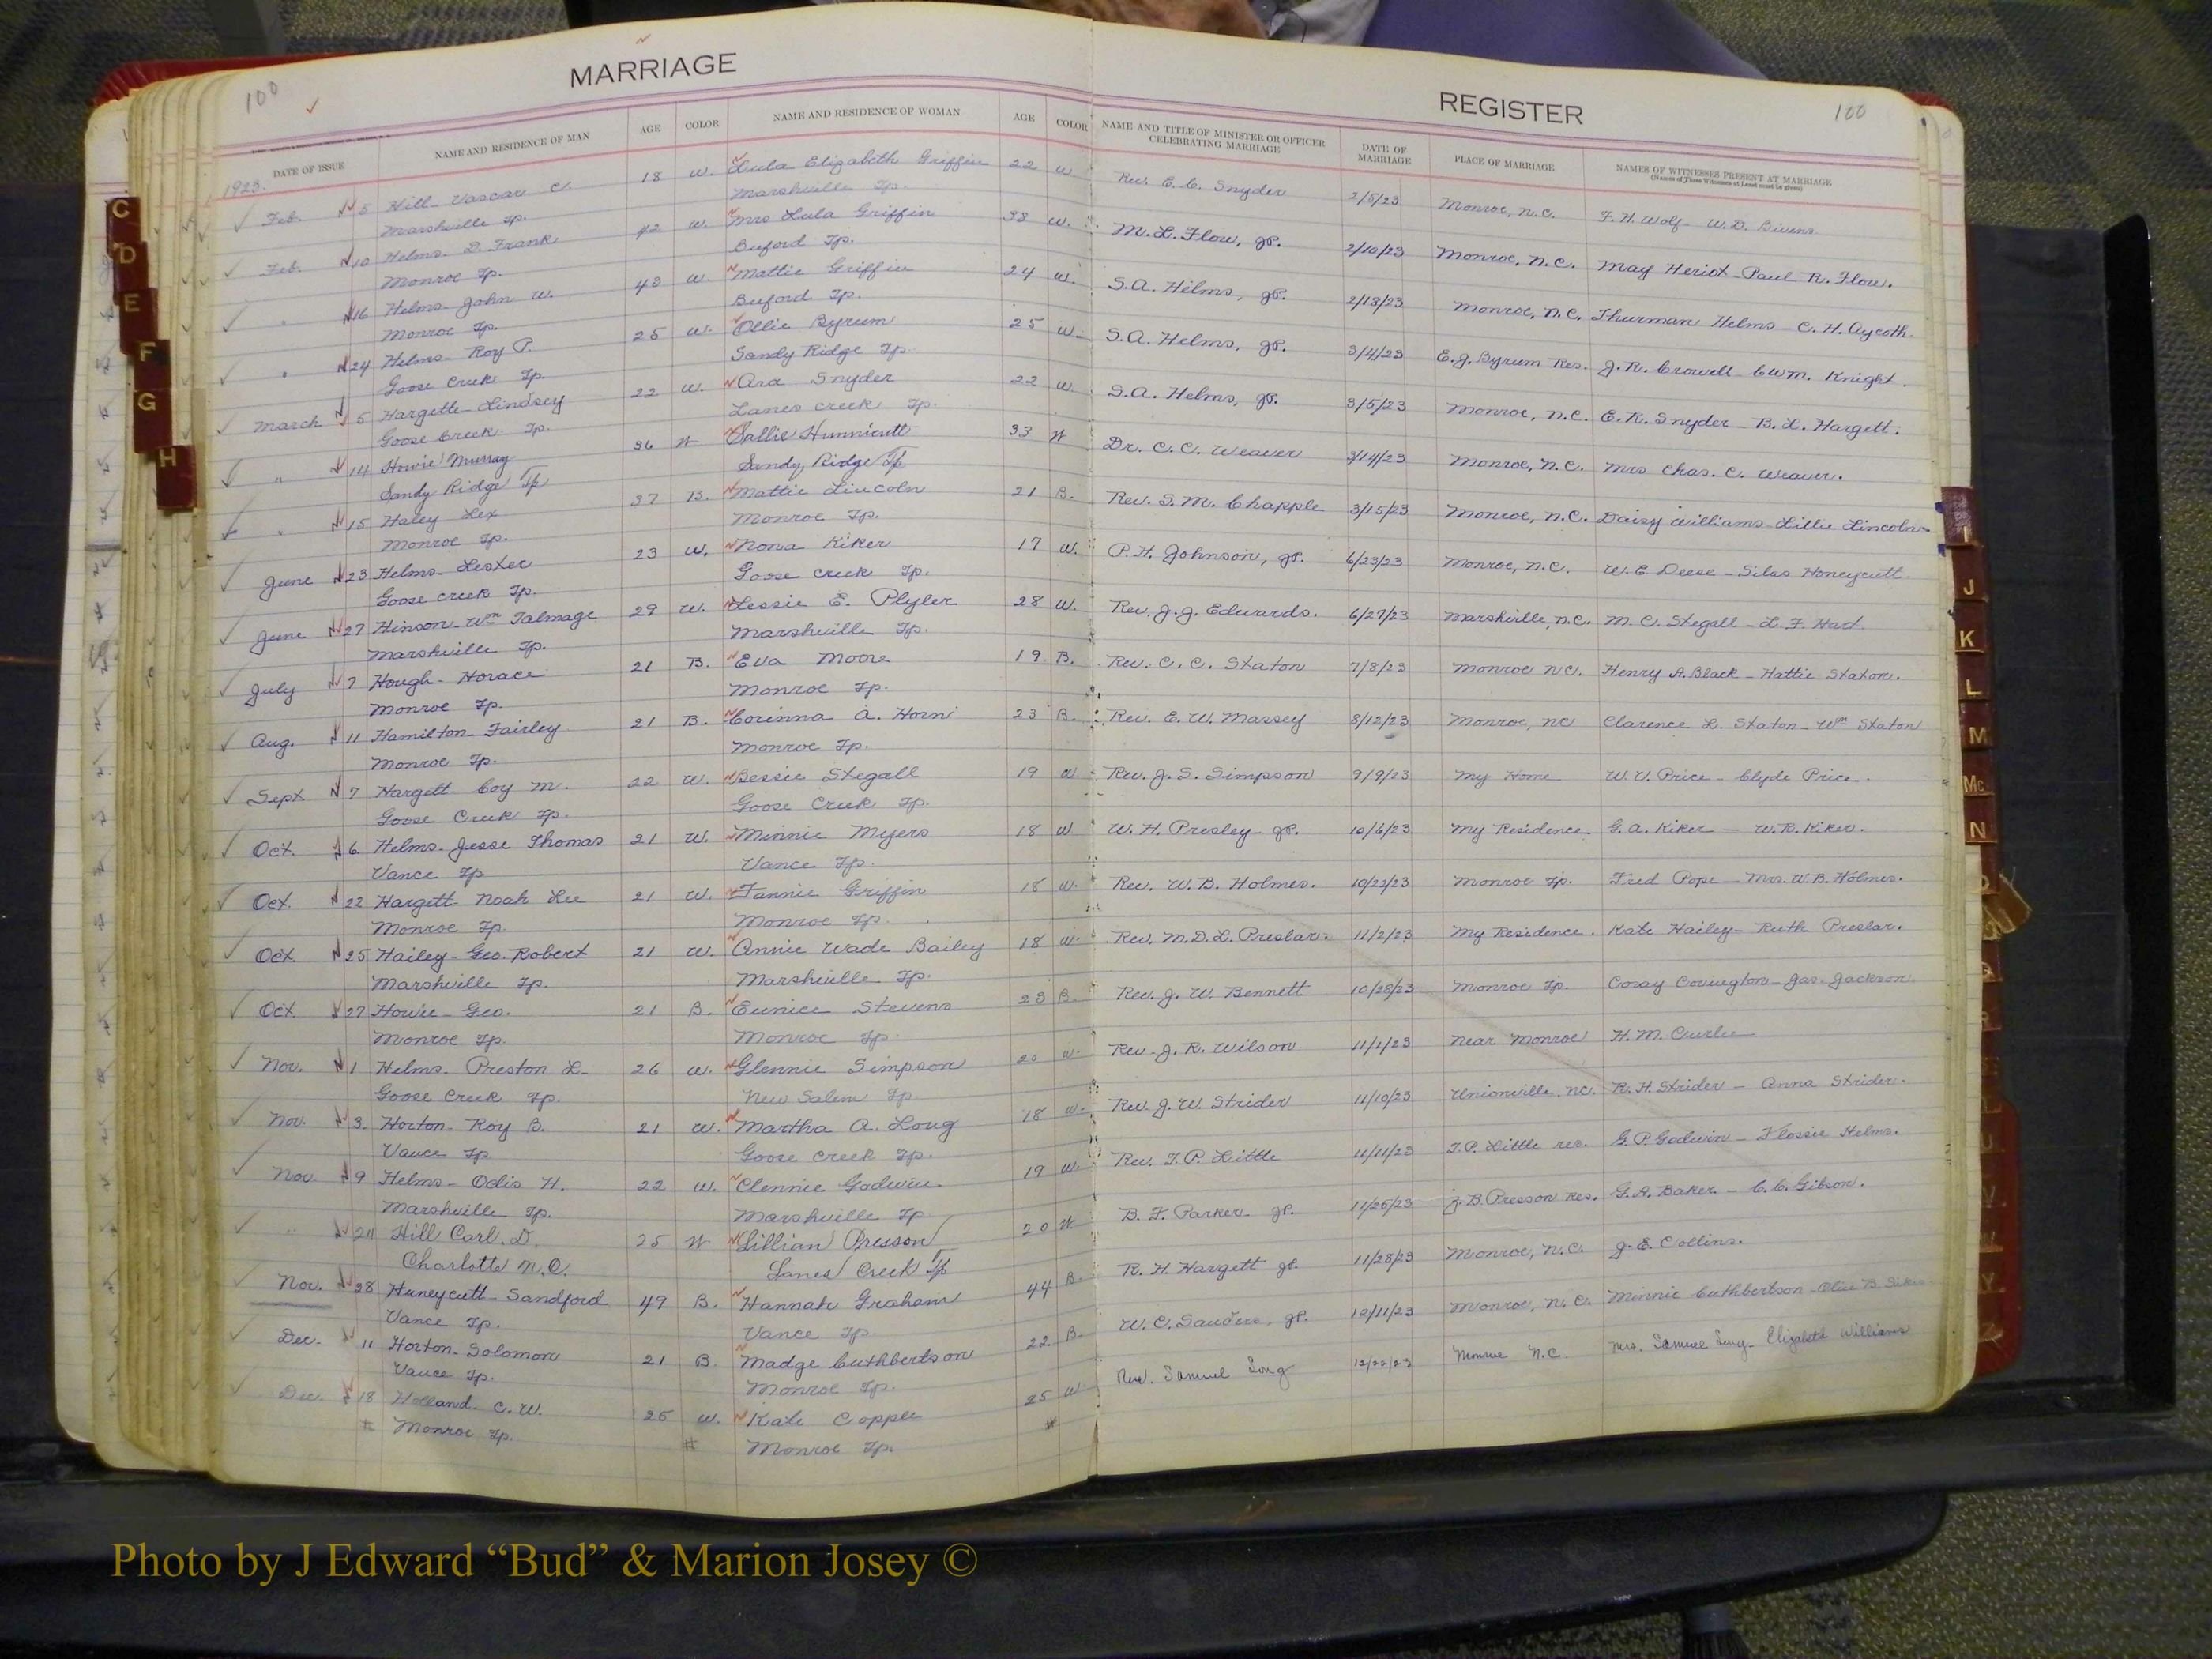 100 MARRIAGE REGISTER 100
DATE OF ISSUE NAME AND RESIDENCE OF MAN AGE COLOR NAME AND RESIDENCE OF WOMAN AGE COLOR NAME AND TITLE OF MINISTER OR OFFICER CELEBRATING MARRIAGE DATE OF MARRIAGE PLACE OF MARRIAGE NAMES OF WITNESSES PRESENT AT MARRIAGE
(Names of Three Witnesses at Least must be given)
1923.
Feb. 5 Hill- Vascar C. 18 W. Lula Elizabeth Griffin 22 W. Rev. E. C. Snyder 2/5/23 Monroe, N.C. F. H. Wolf- W. D. Bivens
Marshville Tp. Marshville Tp.
Feb. 10 Helms- D. Frank 42 W. Mrs Lula Griffin 38 W. M. L. Flow, JP. 2/10/23 Monroe, N.C. May Heriot- Paul R. Flow.
Monroe Tp. Buford Tp.
" 16 Helms- John W. 40 W. Mattie Griffin 24 W. S. A. Helms, JP. 2/18/23 Monroe, N.C. Thurman Helms- C. H. Aycoth
Monroe Tp. Buford Tp.
" 24 Helms- Roy P. 25 W. Ollie Byrum 25 W. S. A. Helms, JP. 3/4/23 E. J. Byrum Res. J. R. Crowell- C Wm. Knight.
Goose Creek Tp. Sandy Ridge Tp
March 5 Hargette- Lindsey 22 W. Ara Snyder 22 W. S. A. Helms, JP. 3/5/23 Monroe, N.C. E. K. Snyder- B. L. Hargett.
Goose Creek Tp. Lanes Creek Tp.
" 14 Howie Murray 36 W Sallie Hunnicutt 33 W Dr. C. C. Weaver 3/14/23 Monroe, N.C. Mrs Chas. C. Weaver.
Sandy Ridge Tp Sandy Ridge Tp
" 15 Haley Lex 37 B. Mattie Lincoln 21 B. Rev. S. M. Chapple 3/15/23 Monroe, N.C. Daisy Williams- Lillie Lincoln
Monroe Tp. Monroe Tp.
June 23 Helms- Lester 23 W. Nona Kiker 17 W. P. H. Johnson, JP. 6/23/23 Monroe, N.C. W. E. Deese- Silas Honeycutt
Goose Creek Tp. Goose Creek Tp.
June 27 Hinson- Wm Talmage 29 W. Lessie E. Plyler 28 W. Rev. J. J. Edwards. 6/27/23 Marshville, N.C. M. C. Stegall- L. F. Had
Marshville Tp. Marshville Tp.
July 7 Hough- Horace 21 B. Eva Moore 19 B. Rev. C. C. Staton 7/8/23 Monroe NC. Henry A. Black- Hattie Staton.
Monroe Tp. Monroe Tp.
Aug. 11 Hamilton- Fairley 21 B. Corinna A. Horn 23 B. Rev. E. W. Massey 8/12/23 Monroe, NC Clarence L. Staton- Wm Staton
Monroe Tp. Monroe Tp.
Sept 7 Hargett- Coy M. 22 W. Bessie Stegall 19 W Rev. J. S. Simpson 9/9/23 My Home W. V. Price- Clyde Price.
Goose Creek Tp. Goose Creek Tp.
Oct. 6 Helms- Jesse Thomas 21 W. Minnie Myers 18 W W. H. Presley- JP. 10/6/23 My Residence G. A. Kiker- W. R. Kiker.
Vance Tp Vance Tp.
Oct. 22 Hargett- Noah Lee 21 W. Fannie Griffin 18 W. Rev. W. B. Holmes. 10/22/23 Monroe Tp. Fred Pope- Mrs. W. B. Holmes.
Monroe Tp. Monroe Tp.
Oct. 25 Hailey- Geo. Robert 21 W. Annie Wade Bailey 18 W. Rev. M. D. L. Preslar. 11/2/23 My Residence. Kate Hailey- Ruth Preslar.
Marshville Tp. Marshville Tp.
Oct 27 Howie- Geo. 21 B. Eunice Stevens 23 B. Rev. J. W. Bennett 10/28/23 Monroe Tp. Coray Covington- Jas. Jackson
Monroe Tp. Monroe Tp.
Nov. 1 Helms- Preston L. 26 W. Glennie Simpson 20 W. Rev. J. R. Wilson 11/1/23 Near Monroe H. M. Curlee
Goose Creek Tp. New Salem Tp
Nov. 3. Horton- Roy B. 21 W. Martha A. Long 18 W. Rev. J. W. Strider 11/10/23 Unionville, NC. R. H. Strider- Anna Strider.
Vance Tp Goose Creek Tp.
Nov. 9 Helms- Odis H. 22 W. Clennie Godwin 19 W. Rev. T. P. Little 11/11/23 T. P. Little res. G. P. Godwin- Flossie Helms.
Marshville Tp. Marshville Tp
" 24 Hill Carl. D. 25 W Lillian Presson 20 W B. F. Parker- JP. 11/25/23 J. B. Presson Res. G. A. Baker- C. C. Gibson.
Charlotte N.C. Lanes Creek Tp
Nov. 28 Huneycutt- Sandford 49 B. Hannah Graham 44 B. R. H. Hargett JP. 11/28/23 Monroe, N.C. J. E. Collins.
Vance Tp. Vance Tp.
Dec. 11 Horton- Solomon 21 B. Madge Cuthbertson 22 B. W. C. Sanders, JP. 12/11/23 Monroe, N.C. Minnie Cuthbertson- Olin B.
Vance Tp. Monroe Tp.
Dec. 18 Holland. C. W. 25 W. Kate Copple 25 W. Rev. Samuel Long 12/22/23 Monroe N.C. Mrs. Samuel Long- Elizabeth Williams
# Monroe Tp. # Monroe Tp. #
C
D
E
F
G
H
I
J
K
L
M
Mc
N
Photo by J Edward “Bud” & Marion Josey ©